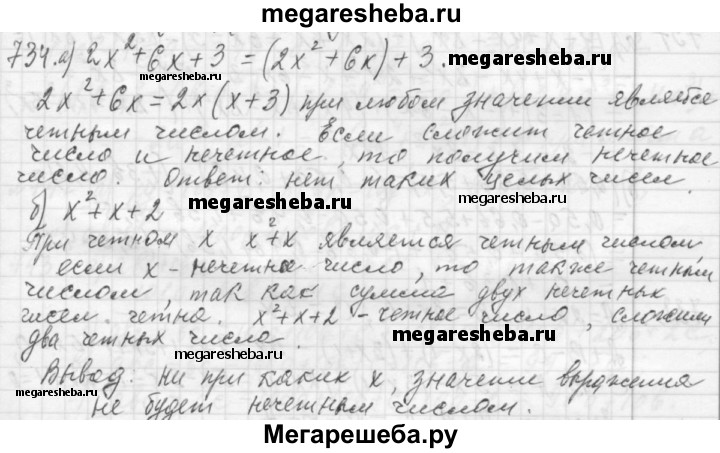 megaresheba.ru
734. а) 2x²+6x+3 = (2x²+6x)+3.
megaresheba.ru
megaresheba.ru
2x²+6x=2x(x+3) при любом значении является
четным числом. Если сложит четное
число и нечетное, то получим нечетное
число. Ответ: нет таких целых чисел.
б) x²+x+2
megaresheba.ru
megaresheba.ru
При четном x x²+x является четным числом,
если x - нечетное число, то также четным
числом, так как сумма двух нечетных
чисел четна. x²+x+2 - четное число, сложили
два четных числа.
megaresheba.ru
megaresheba.ru
Вывод: ни при каких x, значение выражения
не будет нечетным числом.
megaresheba.ru
Мегарешеба.ру